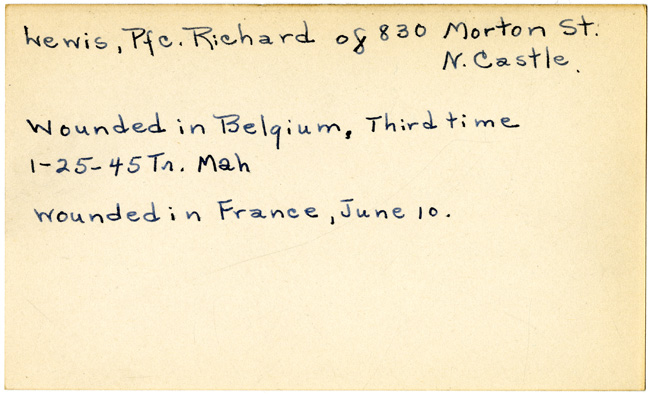 Lewis, Pfc. Richard of 830 Morton St.
N. Castle.
Wounded in Belgium, Third time
1-25-45 Tr. Mah
Wounded in France, June 10.